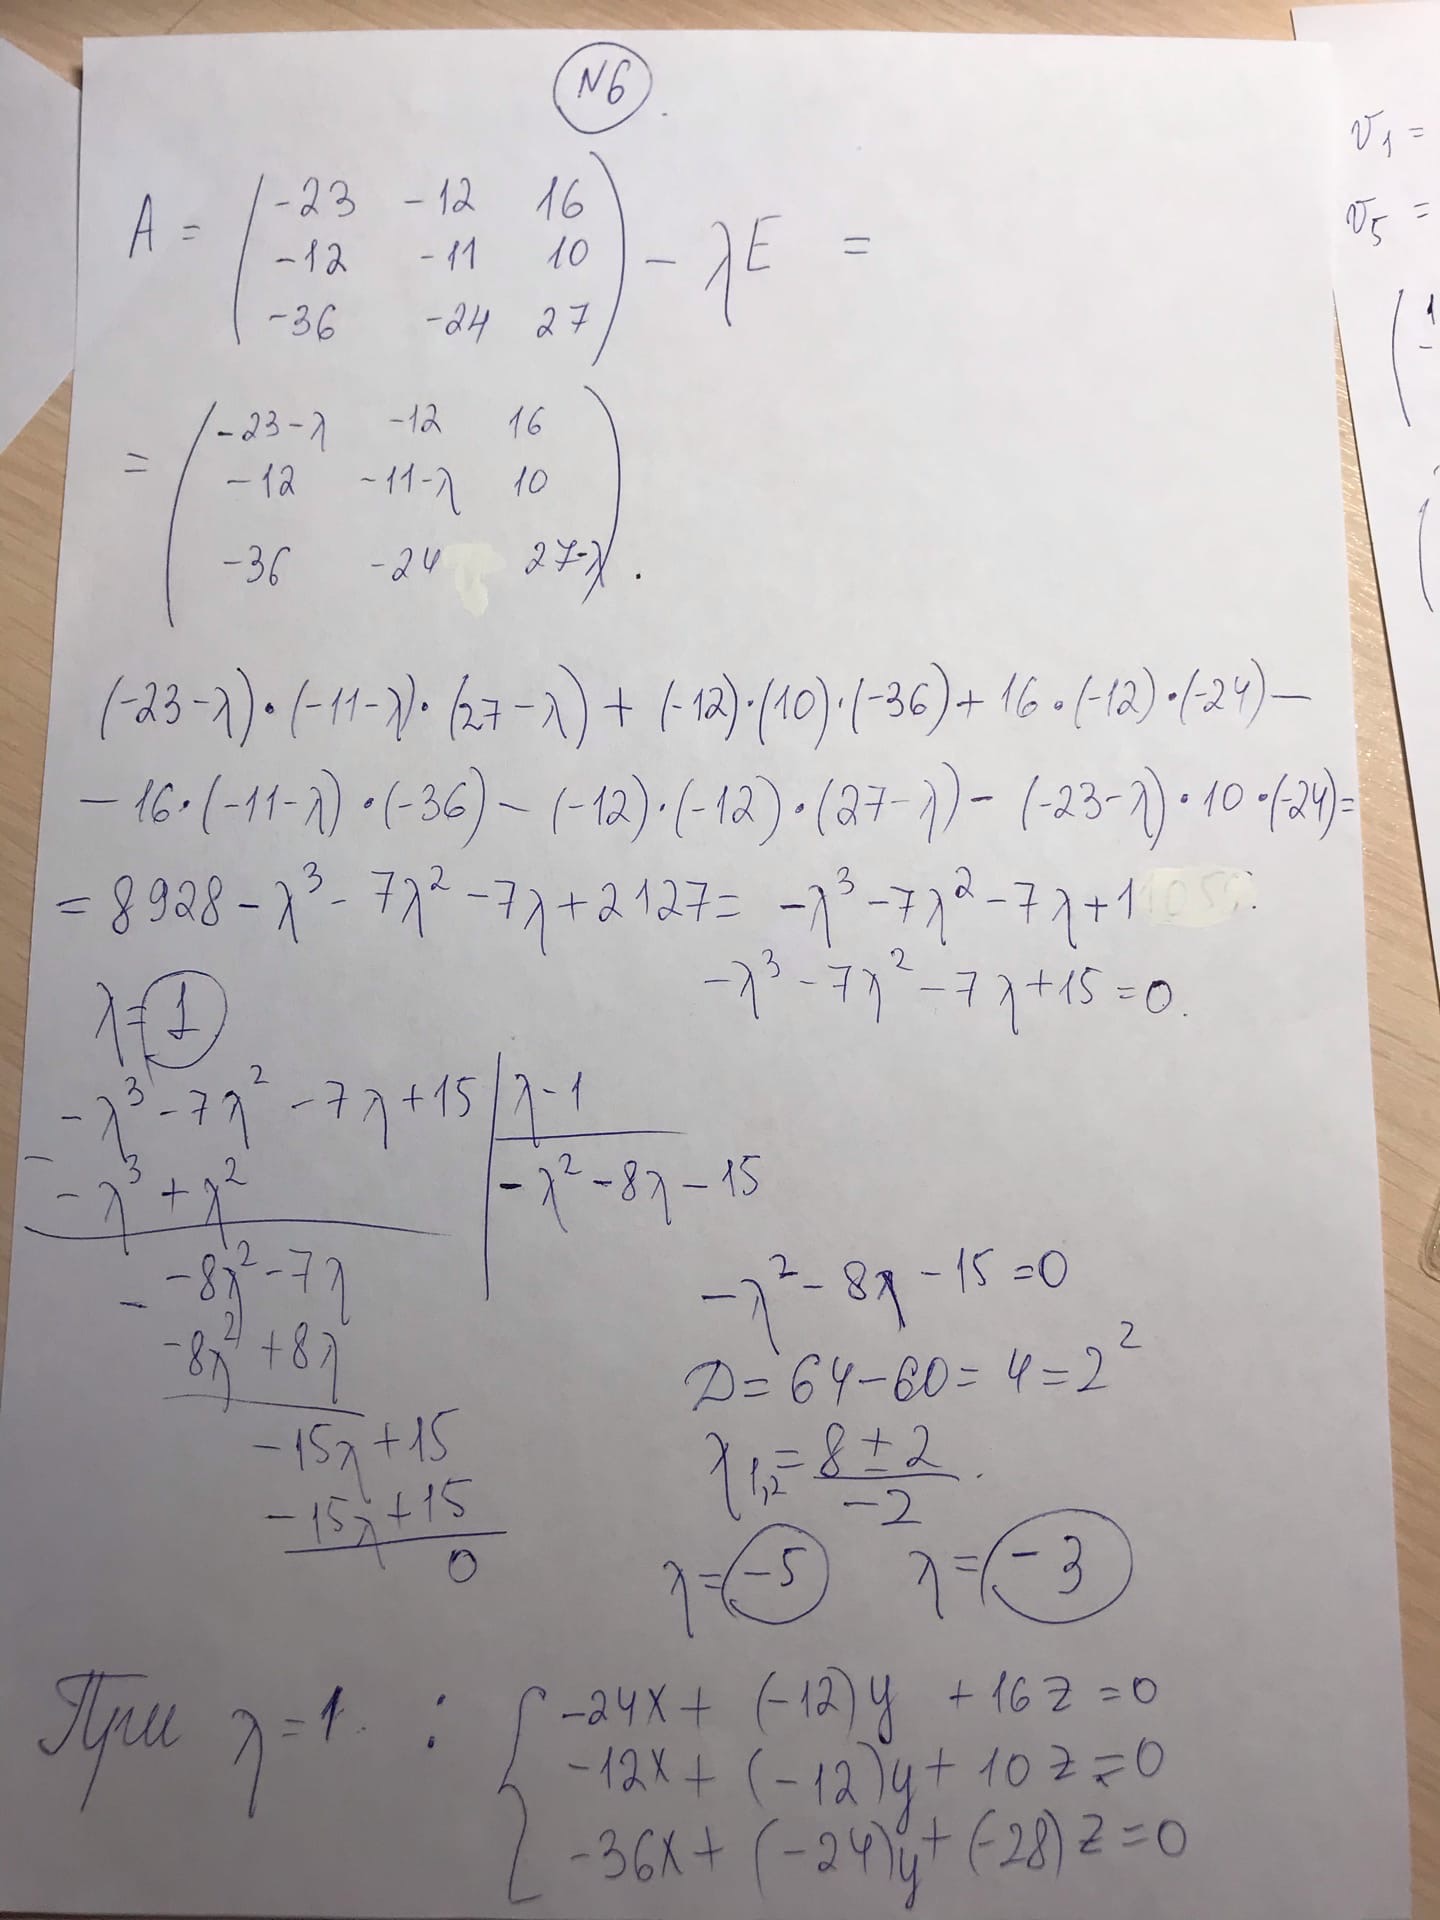 №6.
A = ( -23 -12 16
-12 -11 10
-36 -24 27 ) - λE =
= ( -23-λ -12 16
-12 -11-λ 10
-36 -24 27-λ ).
(-23-λ)·(-11-λ)·(27-λ)+(-12)·(10)·(-36)+16·(-12)·(-24)-
-16·(-11-λ)·(-36)-(-12)·(-12)·(27-λ)-(-23-λ)·10·(-24)=
= 8928-λ³-7λ²-7λ+2127= -λ³-7λ²-7λ+1
-λ³-7λ²-7λ+15=0.
λ=1
-λ³-7λ²-7λ+15 | λ-1
-λ³+λ² | -λ²-8λ-15
-8λ²-7λ
-8λ²+8λ
-15λ+15
-15λ+15
0
-λ²-8λ-15=0
D=64-60=4=2²
λ1,2=8±2/-2.
λ=-5 λ=-3
При λ=1. : { -24x+(-12)y+16z=0
-12x+(-12)y+10z=0
-36x+(-24)y+(-28)z=0
v1=
v5=